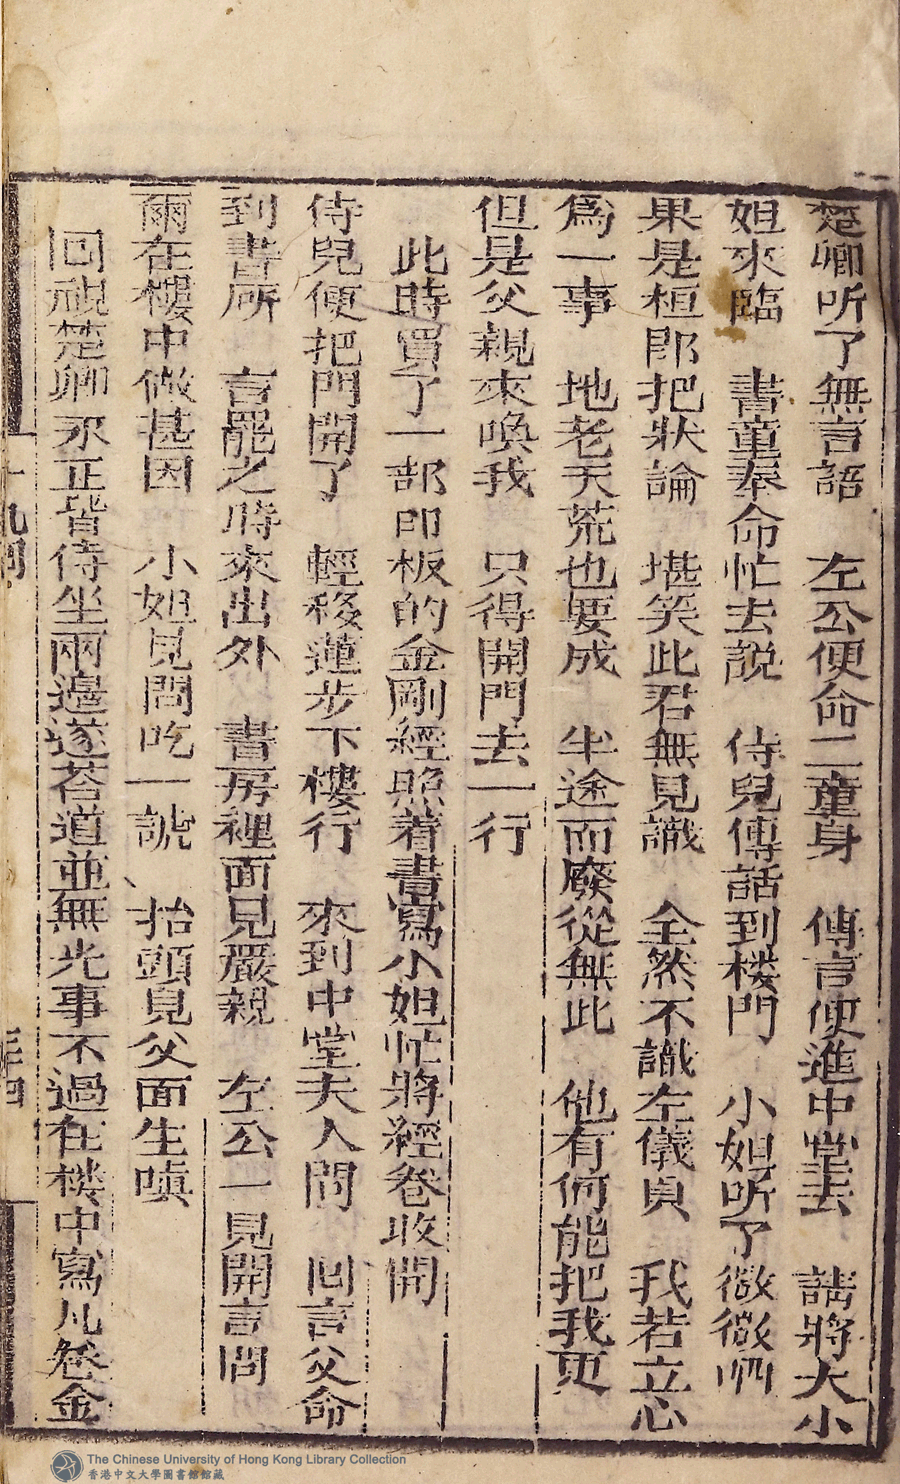 楚卿听了無言語　左公便命二童身　傳言便進中堂去　請將大小
姐來臨　書童奉命忙去説　侍兒傳話到楼門　小姐听了微微哂
果是桓郎把狀論　堪笑此君無見識　全然不識左儀貞　我若立心
爲一事　地老天荒也要成　半途而廢從無此　他有何能把我更
但是父親來喚我　只得開門去一行
此時買了一部印板的金剛經照着書寫小姐忙將經卷收開
侍兒便把門開了　輕移蓮步下樓行　來到中堂夫人問　回言父命
到書㕔　言罷之時來出外　書房裡面見嚴親　左公一見開言問
爾在樓中做甚因　小姐見問吃一諕　抬頭見父面生嗔
回視楚卿永正皆侍坐兩邊遂荅道並無光事不過在楼中寫几卷金
十九囘
三四
The Chinese University of Hong Kong Library Collection
香港中文大學圖書館館藏